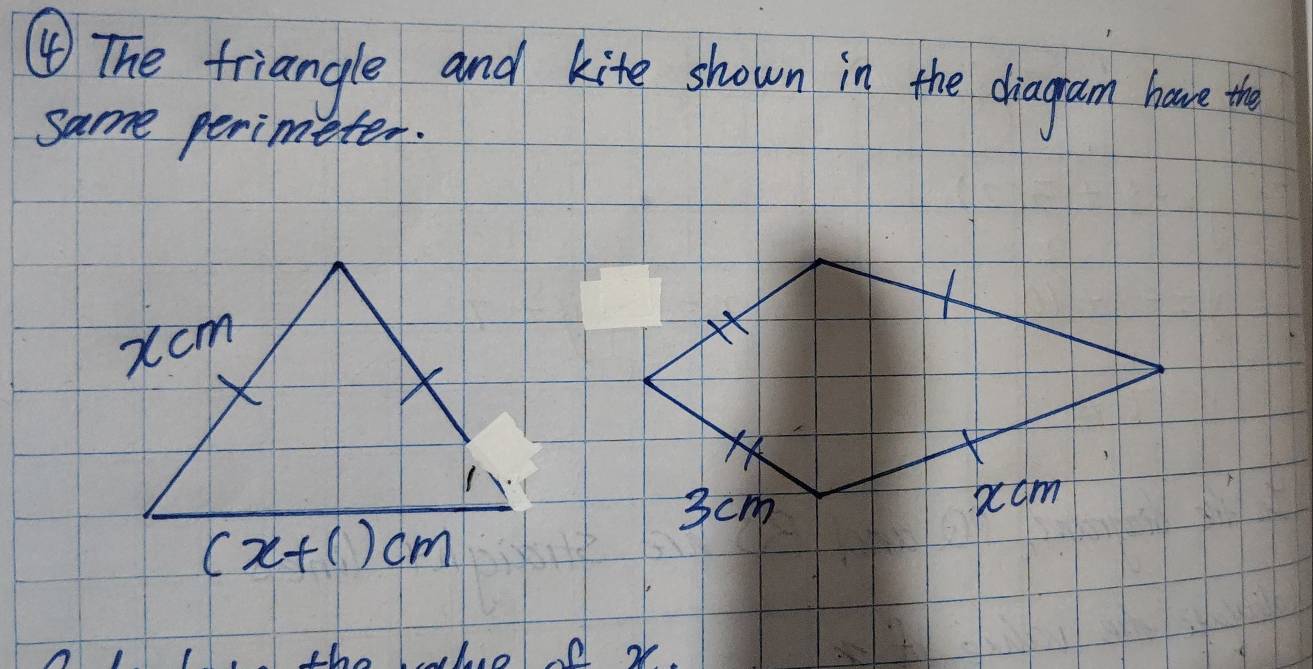 ④ The triangle and kite shown in the diagram have the
same perimeter.
x cm
3 cm
x cm
(x+1) cm
the value of x.